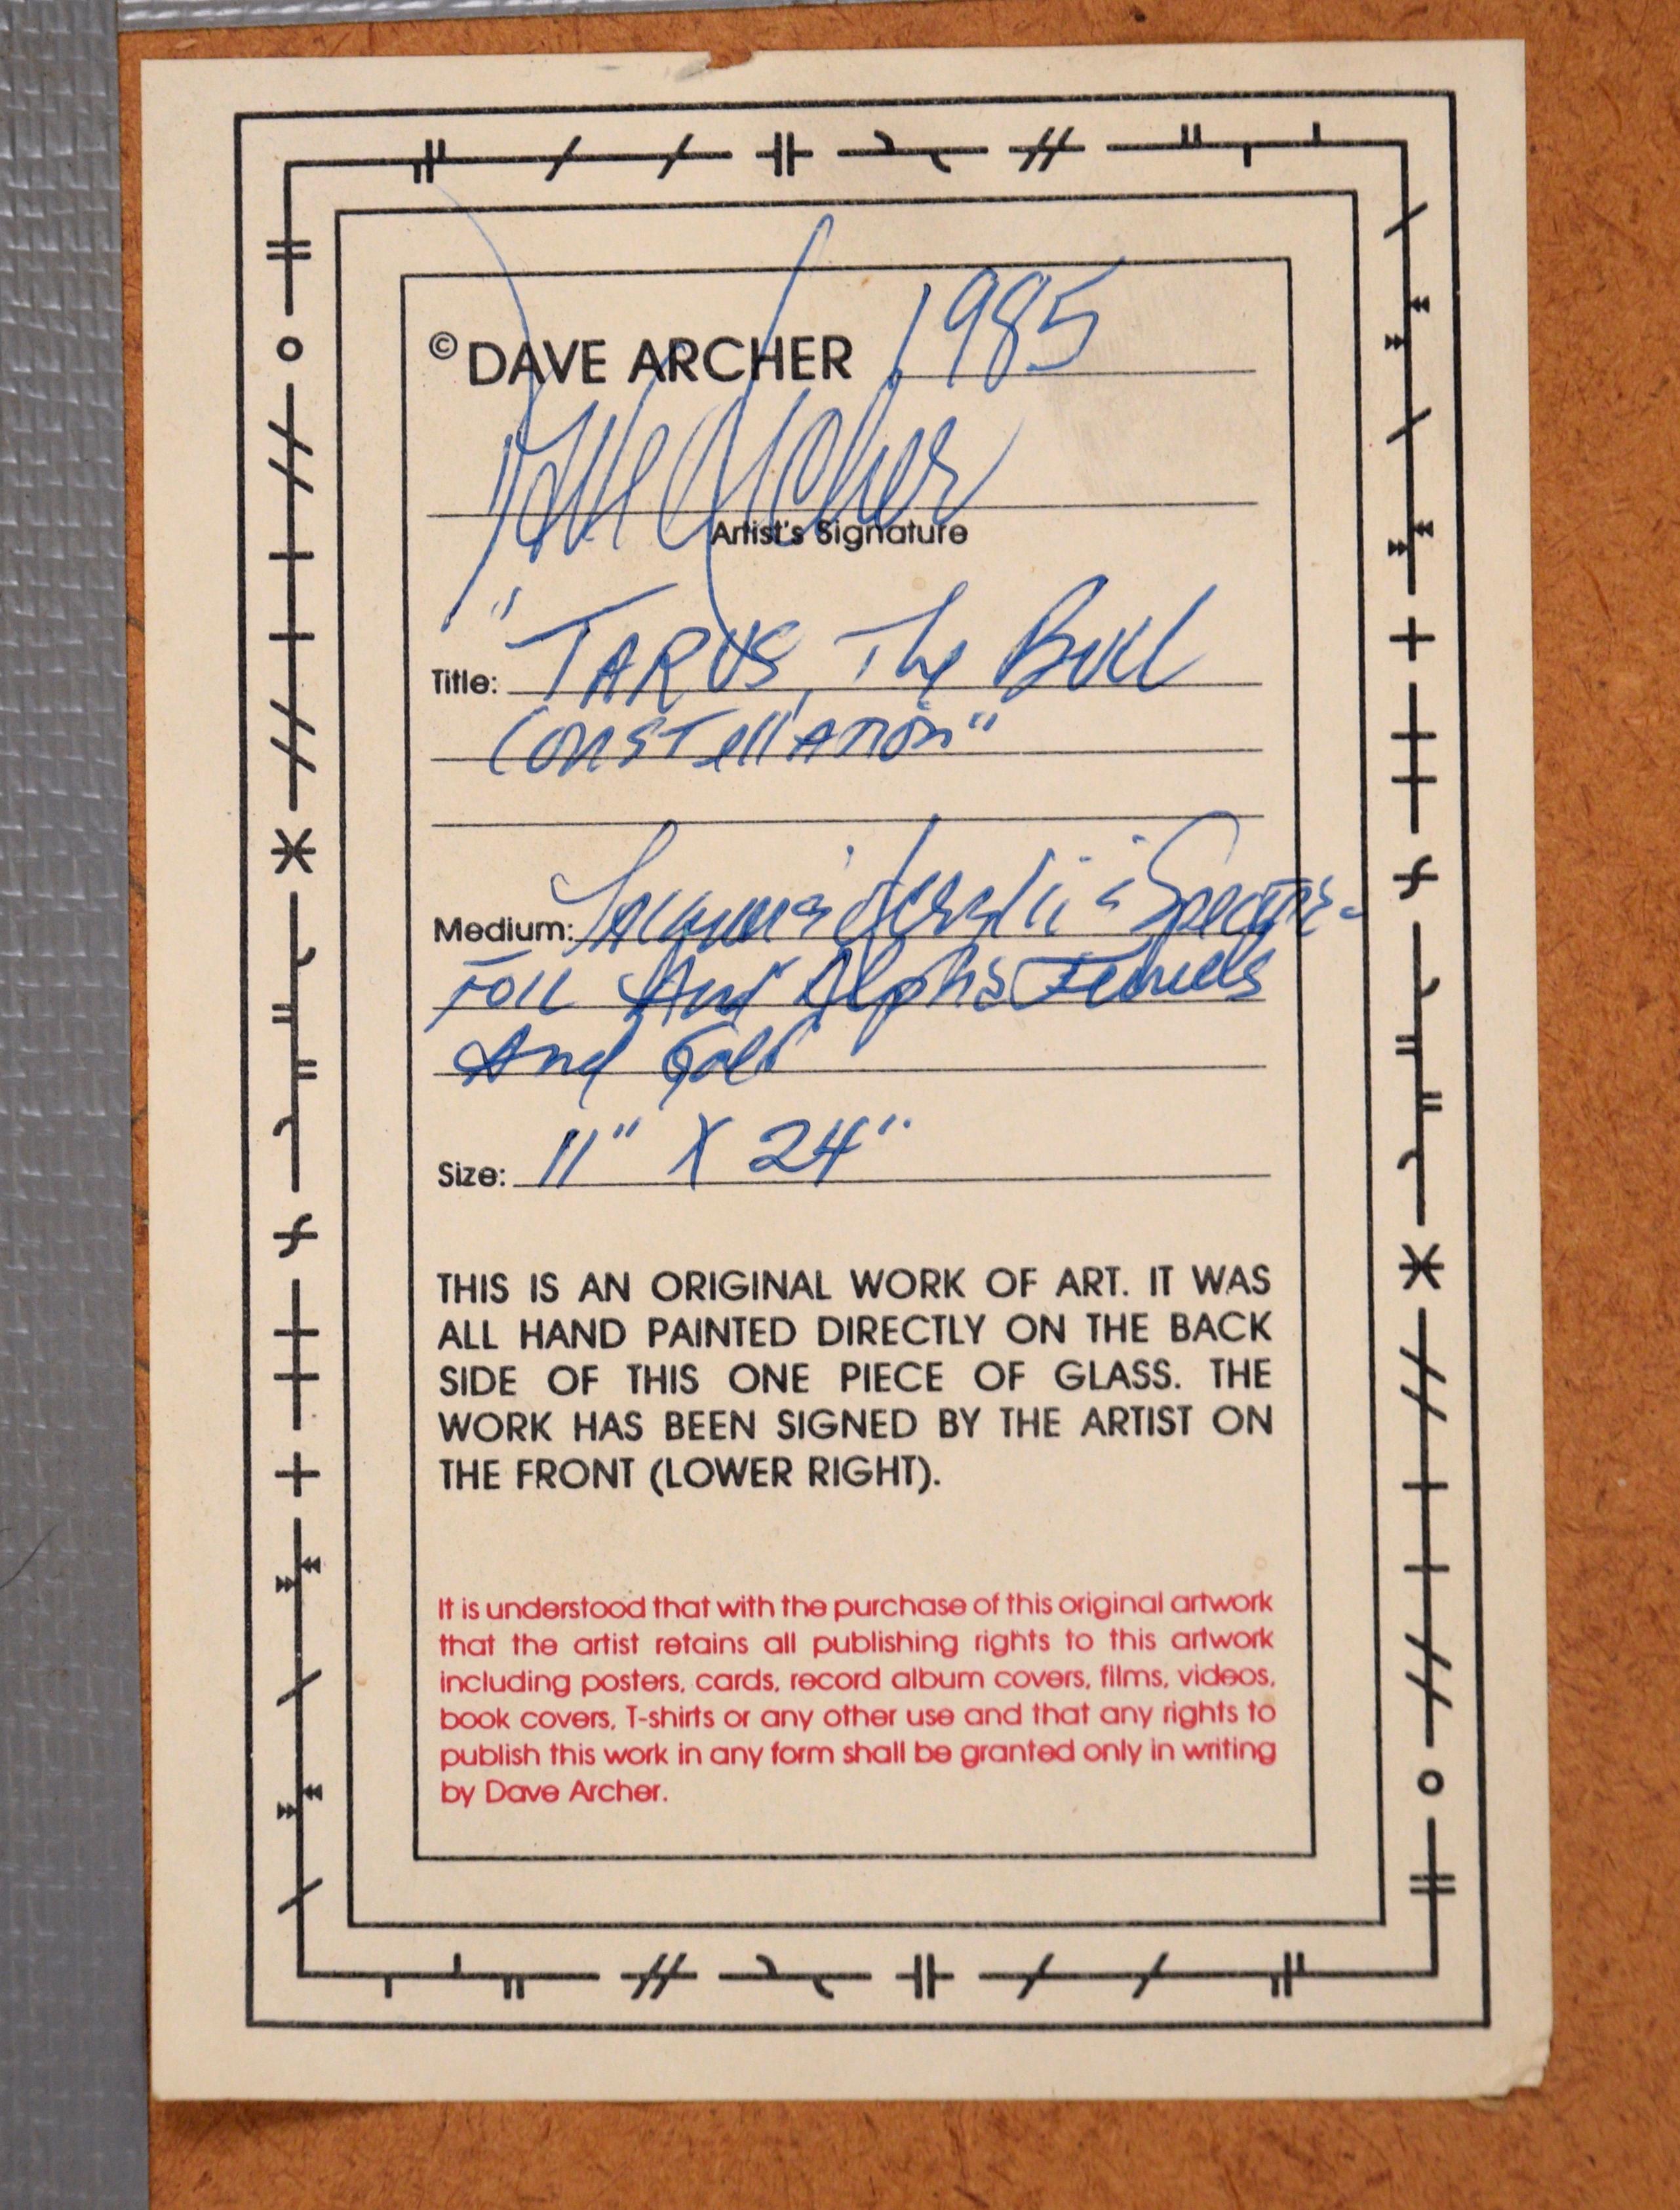 © DAVE ARCHER 1985
Dave Archer
Artist's Signature
Title: "TARUS, The Bull
Constellation"
Medium:
Foil And Alpha
And Gold
Size: 11" X 24"
THIS IS AN ORIGINAL WORK OF ART. IT WAS
ALL HAND PAINTED DIRECTLY ON THE BACK
SIDE OF THIS ONE PIECE OF GLASS. THE
WORK HAS BEEN SIGNED BY THE ARTIST ON
THE FRONT (LOWER RIGHT).
It is understood that with the purchase of this original artwork
that the artist retains all publishing rights to this artwork
including posters, cards, record album covers, films, videos,
book covers, T-shirts or any other use and that any rights to
publish this work in any form shall be granted only in writing
by Dave Archer.